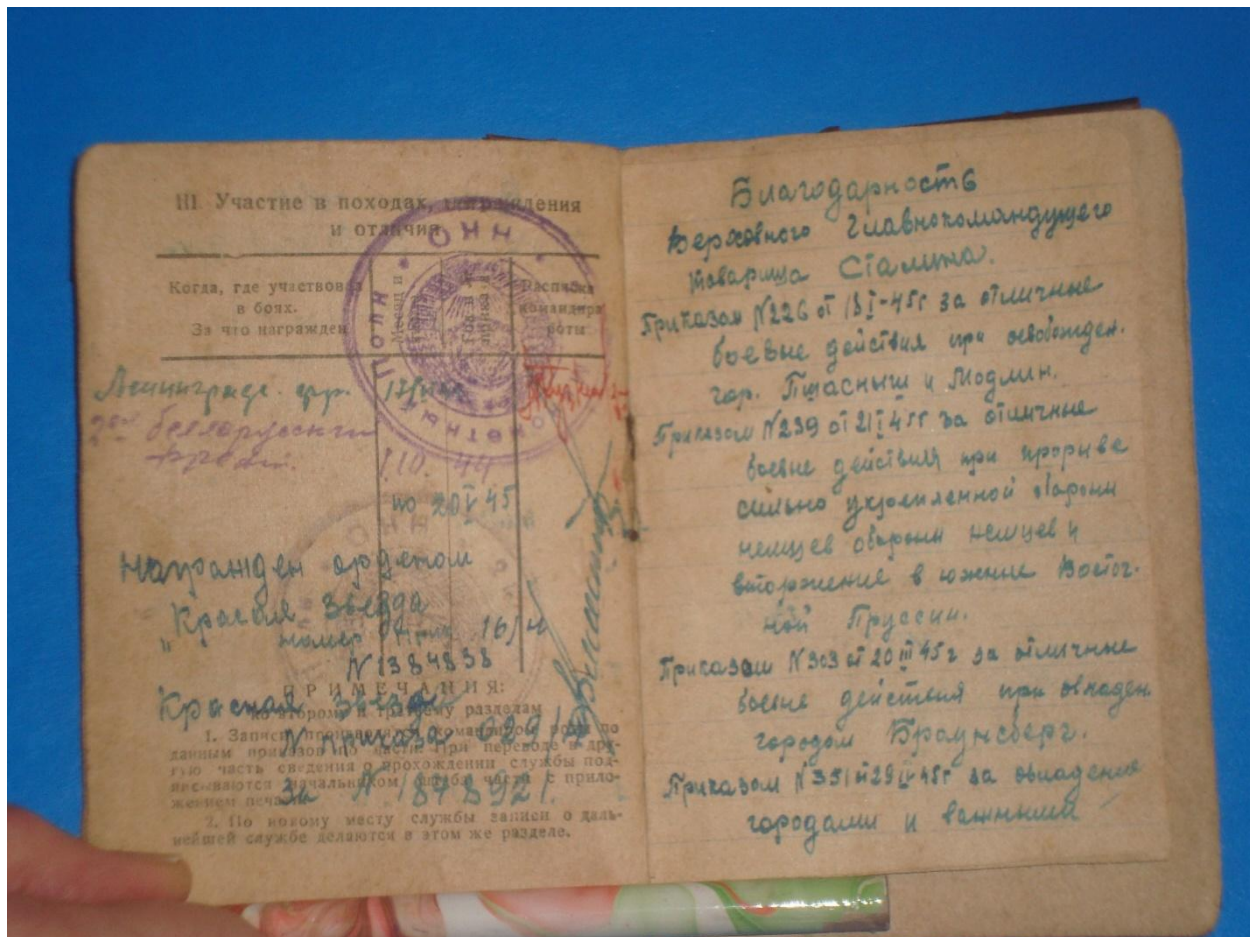 III. Участие в походах, награждения
и отличия
Когда, где участвовал
в боях.
За что награжден
Расписка
командира
роты
Ленинградс. фр.
2ой белорусский
фронт.
110. 44
по 20 V 45
Награжден орденом
„Красная Звезда
номер 16/н
N 1384838
Красная звезда
N приказа 029/
За N. 1878921.
ПРИМЕЧАНИЯ:
ко второму и третьему разделам
1. Записи производятся командиром роты по
данным приказов по части. При переводе в дру-
гую часть сведения о прохождении службы под-
писываются начальником штаба части с прило-
жением печати.
2. По новому месту службы записи о даль-
нейшей службе делаются в этом же разделе.
Благодарность
Верховного Главнокомандущего
товарища Сталина.
Приказом N226 от 18 I-45г за отличные
боевые действия при освобожден.
гор. Пшасныш и Модлин.
Приказом N239 от 21 I 45г за отличные
боевые действия при прорыве
сильно укрепленной обороны
немцев обороны немцев и
вторжение в южные Восточ-
ной Пруссии.
Приказом N303 от 20 III 45г за отличные
боевые действия при овладен
городом Браунсберг.
Приказом N351 от 29 IV 45г за овладение
городами и важными